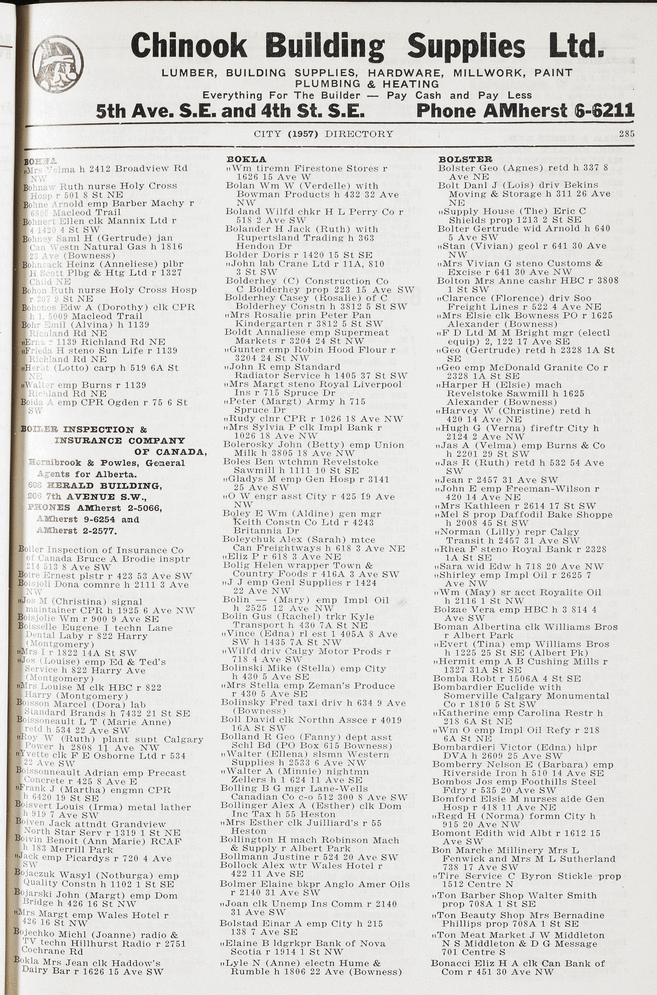 Chinook Building Supplies Ltd.
LUMBER, BUILDING SUPPLIES, HARDWARE, MILLWORK, PAINT
PLUMBING & HEATING
Everything For The Builder — Pay Cash and Pay Less
5th Ave. S.E. and 4th St. S.E. Phone AMherst 6-6211
CITY (1957) DIRECTORY 285
BOHNA
„Mrs Velma h 2412 Broadview Rd
NW
Bohnaw Ruth nurse Holy Cross
Hosp r 501 8 St NE
Bohne Arnold emp Barber Machy r
6808 Macleod Trail
Bohnert Ellen clk Mannix Ltd r
1420 4 St SW
Bohney Saml H (Gertrude) jan
Can Westn Natural Gas h 1816
23 Ave (Bowness)
Bohnrack Heinz (Anneliese) plbr
H Scott Plbg & Htg Ltd r 1327
Child NE
Bohon Ruth nurse Holy Cross Hosp
r 207 9 St NE
Bohonos Edw A (Dorothy) clk CPR
h 5009 Macleod Trail
Bohr Emil (Alvina) h 1139
Richland Rd NE
„Erna r 1139 Richland Rd NE
„Frieda H steno Sun Life r 1139
Richland Rd NE
„Horst (Lotto) carp h 519 6A St
NE
„Walter emp Burns r 1139
Richland Rd NE
Boida A emp CPR Ogden r 75 6 St
SW
BOILER INSPECTION &
INSURANCE COMPANY
OF CANADA,
Hornibrook & Powles, General
Agents for Alberta.
608 HERALD BUILDING,
206 7th AVENUE S.W.,
PHONES AMherst 2-5066,
AMherst 9-6254 and
AMherst 2-2577.
Boiler Inspection of Insurance Co
of Canada Bruce A Brodie insptr
214 513 8 Ave SW
Boire Ernest plstr r 423 53 Ave SW
Boisjoli Dona comnre h 2111 3 Ave
NW
„Jos M (Christina) signal
maintainer CPR h 1925 6 Ave NW
Boisjolie Wm r 900 9 Ave SE
Boisselle Eugene I techn Lane
Dental Laby r 822 Harry
(Montgomery)
„Mrs I r 1822 14A St SW
„Jos (Louise) emp Ed & Ted's
Service h 822 Harry Ave
(Montgomery)
„Mrs Louise M clk HBC r 822
Harry (Montgomery)
Boisson Marcel (Dora) lab
Standard Brands h 7432 21 St SE
Boissoneault L T (Marie Anne)
retd h 534 22 Ave SW
„Roy W (Ruth) plant supt Calgary
Power h 2808 11 Ave NW
„Yvette clk F E Osborne Ltd r 534
22 Ave SW
Boissonneault Adrian emp Precast
Concrete r 425 8 Ave E
„Frank J (Martha) engmn CPR
h 6420 19 St SE
Boisvert Louis (Irma) metal lather
h 919 7 Ave SW
Boiven Jack attndt Grandview
North Star Serv r 1319 1 St NE
Boivin Benoit (Ann Marie) RCAF
h 183 Merrill Park
„Jack emp Picardys r 720 4 Ave
SW
Bojaczuk Wasyl (Notburga) emp
Quality Constn h 1102 1 St SE
Bojarski John (Margt) emp Dom
Bridge h 426 16 St NW
„Mrs Margt emp Wales Hotel r
426 16 St NW
Bojechko Michl (Joanne) radio &
TV techn Hillhurst Radio r 2751
Cochrane Rd
Bokla Mrs Jean clk Haddow's
Dairy Bar r 1626 15 Ave SW
BOKLA
„Wm tiremn Firestone Stores r
1626 15 Ave W
Bolan Wm W (Verdelle) with
Bowman Products h 432 32 Ave
NW
Boland Wilfd chkr H L Perry Co r
518 2 Ave SW
Bolander H Jack (Ruth) with
Rupertsland Trading h 363
Hendon Dr
Bolder Doris r 1420 15 St SE
„John lab Crane Ltd r 11A, 810
3 St SW
Bolderhey (C) Construction Co
C Bolderhey prop 223 15 Ave SW
Bolderhey Casey (Rosalie) of C
Bolderhey Constn h 3812 5 St SW
„Mrs Rosalie prin Peter Pan
Kindergarten r 3812 5 St SW
Boldt Annaliese emp Supermeat
Markets r 3204 24 St NW
„Gunter emp Robin Hood Flour r
3204 24 St NW
„John R emp Standard
Radiator Service h 1405 37 St SW
„Mrs Margt steno Royal Liverpool
Ins r 715 Spruce Dr
„Peter (Margt) Army h 715
Spruce Dr
„Rudy clnr CPR r 1026 18 Ave NW
„Mrs Sylvia P clk Impl Bank r
1026 18 Ave NW
Bolerosky John (Betty) emp Union
Milk h 3805 18 Ave NW
Boles Ben wtchmn Revelstoke
Sawmill h 1111 10 St SE
„Gladys M emp Gen Hosp r 3141
25 Ave SW
„O W engr asst City r 425 19 Ave
NW
Boley E Wm (Aldine) gen mgr
Keith Constn Co Ltd r 4243
Britannia Dr
Boleychuk Alex (Sarah) mtce
Can Freightways h 618 3 Ave NE
„Eliz F r 618 3 Ave NE
Bolig Helen wrapper Town &
Country Foods r 416A 3 Ave SW
„J J emp Genl Supplies r 1424
22 Ave NW
Bolin — (Mary) emp Impl Oil
h 2525 12 Ave NW
Bolin Gus (Rachel) trkr Kyle
Transport h 430 7A St NE
„Vince (Edna) rl est 1 405A 8 Ave
SW h 1435 7A St NW
„Wilfd driv Calgy Motor Prods r
718 4 Ave SW
Bolinski Mike (Stella) emp City
h 430 5 Ave SE
„Mrs Stella emp Zeman's Produce
r 430 5 Ave SE
Bolinsky Fred taxi driv h 634 9 Ave
(Bowness)
Boll David clk Northn Assce r 4019
16A St SW
Bolland R Geo (Fanny) dept asst
Schl Bd (PO Box 615 Bowness)
„Walter (Ellena) slsmn Western
Supplies h 2533 6 Ave NW
„Walter A (Minnie) nightmn
Zellers h 1 624 11 Ave SE
Bolling B G mgr Lane-Wells
Canadian Co e-o 512 300 8 Ave SW
Bollinger Alex A (Esther) clk Dom
Inc Tax h 55 Heston
„Mrs Esther clk Juilliard's r 55
Heston
Bollington H mach Robinson Mach
& Supply r Albert Park
Bollmann Justine r 524 20 Ave SW
Bollock Alex wtr Wales Hotel r
422 11 Ave SE
Bolmer Elaine bkpr Anglo Amer Oils
r 2140 31 Ave SW
„Joan clk Unemp Ins Comm r 2140
31 Ave SW
Bolstad Einar A emp City h 215
138 7 Ave SE
„Elaine B ldgrkpr Bank of Nova
Scotia r 1914 1 St NW
„Lyle N (Anne) electn Hume &
Rumble h 1806 22 Ave (Bowness)
BOLSTER
Bolster Geo (Agnes) retd h 337 8
Ave NE
Bolt Danl J (Lois) driv Bekins
Moving & Storage h 311 26 Ave
NE
„Supply House (The) Eric C
Shields prop 1213 2 St SE
Bolter Gertrude wid Arnold h 640
5 Ave SW
„Stan (Vivian) geol r 641 30 Ave
NW
„Mrs Vivian G steno Customs &
Excise r 641 30 Ave NW
Bolton Mrs Anne cashr HBC r 3808
1 St SW
„Clarence (Florence) driv Soo
Freight Lines r 522 4 Ave NE
„Mrs Elsie clk Bowness PO r 1625
Alexander (Bowness)
„F D Ltd M M Bright mgr (electl
equip) 2, 122 17 Ave SE
„Geo (Gertrude) retd h 2328 1A St
SE
„Geo emp McDonald Granite Co r
2328 1A St SE
„Harper H (Elsie) mach
Revelstoke Sawmill h 1625
Alexander (Bowness)
„Harvey W (Christine) retd h
420 14 Ave NE
„Hugh G (Verna) fireftr City h
2124 2 Ave NW
„Jas A (Velma) emp Burns & Co
h 2201 29 St SW
„Jas R (Ruth) retd h 532 54 Ave
SW
„Jean r 2457 31 Ave SW
„John E emp Freeman-Wilson r
420 14 Ave NE
„Mrs Kathleen r 2614 17 St SW
„Mel S prop Daffodil Bake Shoppe
h 2008 45 St SW
„Norman (Lilly) repr Calgy
Transit h 2457 31 Ave SW
„Rhea F steno Royal Bank r 2328
1A St SE
„Sara wid Edw h 718 20 Ave NW
„Shirley emp Impl Oil r 2625 7
Ave NW
„Wm (May) sr acct Royalite Oil
h 2116 1 St NW
Bolzae Vera emp HBC h 3 814 4
Ave SW
Boman Albertina clk Williams Bros
r Albert Park
„Evert (Tina) emp Williams Bros
h 1225 25 St SE (Albert Pk)
„Hermit emp A B Cushing Mills r
1327 31A St SE
Bomba Robt r 1506A 4 St SE
Bombardier Euclide with
Somerville Calgary Monumental
Co r 1810 5 St SW
„Katherine emp Carolina Restr h
218 6A St NE
„Wm O emp Impl Oil Refy r 218
6A St NE
Bombardieri Victor (Edna) hlpr
DVA h 2609 25 Ave SW
Bomberry Nelson E (Barbara) emp
Riverside Iron h 510 14 Ave SE
Bombos Jos emp Foothills Steel
Fdry r 535 20 Ave SW
Bomford Elsie M nurses aide Gen
Hosp r 418 11 Ave NE
„Regd H (Norma) formn City h
915 20 Ave NW
Bomont Edith wid Albt r 1612 15
Ave SW
Bon Marche Millinery Mrs L
Fenwick and Mrs M L Sutherland
738 17 Ave SW
„Tire Service C Byron Stickle prop
1512 Centre N
„Ton Barber Shop Walter Smith
prop 708A 1 St SE
„Ton Beauty Shop Mrs Bernadine
Phillips prop 708A 1 St SE
„Ton Meat Market J W Middleton
N S Middleton & D G Message
701 Centre S
Bonacci Eliz H A clk Can Bank of
Com r 451 30 Ave NW